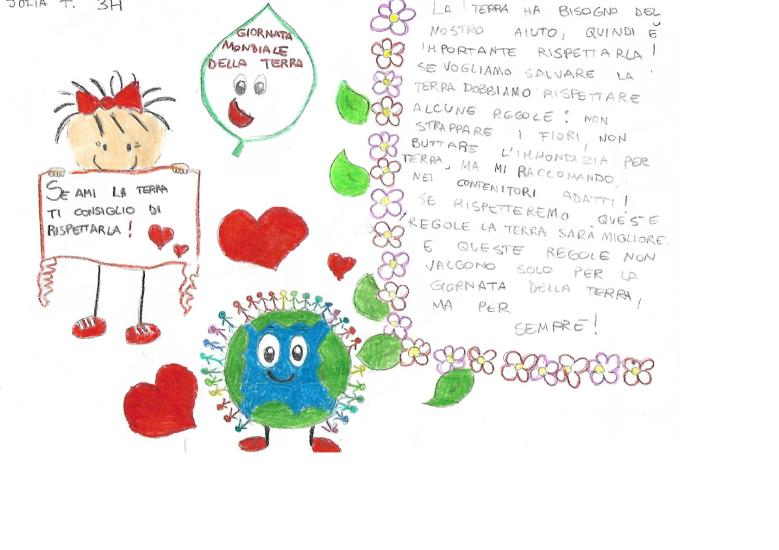 JULIA T. 3H
GIORNATA
MONDIALE
DELLA TERRA
SE AMI LA TERRA
TI CONSIGLIO DI
RISPETTARLA!
LA TERRA HA BISOGNO DEL
NOSTRO AIUTO, QUINDI È
IMPORTANTE RISPETTARLA!
SE VOGLIAMO SALVARE LA
TERRA DOBBIAMO RISPETTARE
ALCUNE REGOLE: NON
STRAPPARE I FIORI, NON
BUTTARE L'IMMONDIZIA PER
TERRA, MA MI RACCOMANDO,
NEI CONTENITORI ADATTI!
SE RISPETTEREMO QUESTE
REGOLE LA TERRA SARÀ MIGLIORE.
E QUESTE REGOLE NON
VALGONO SOLO PER LA
GIORNATA DELLA TERRA,
MA PER
SEMPRE!